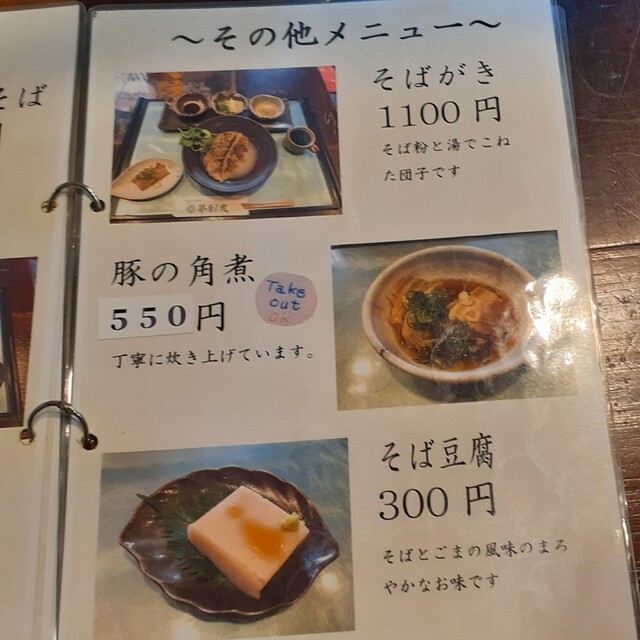 そば
～その他メニュー～
そばがき
1100 円
そば粉と湯でこね
た団子です
豚の角煮
550円
Take
out
OK
丁寧に炊き上げています。
そば豆腐
300 円
そばとごまの風味のまろ
やかなお味です